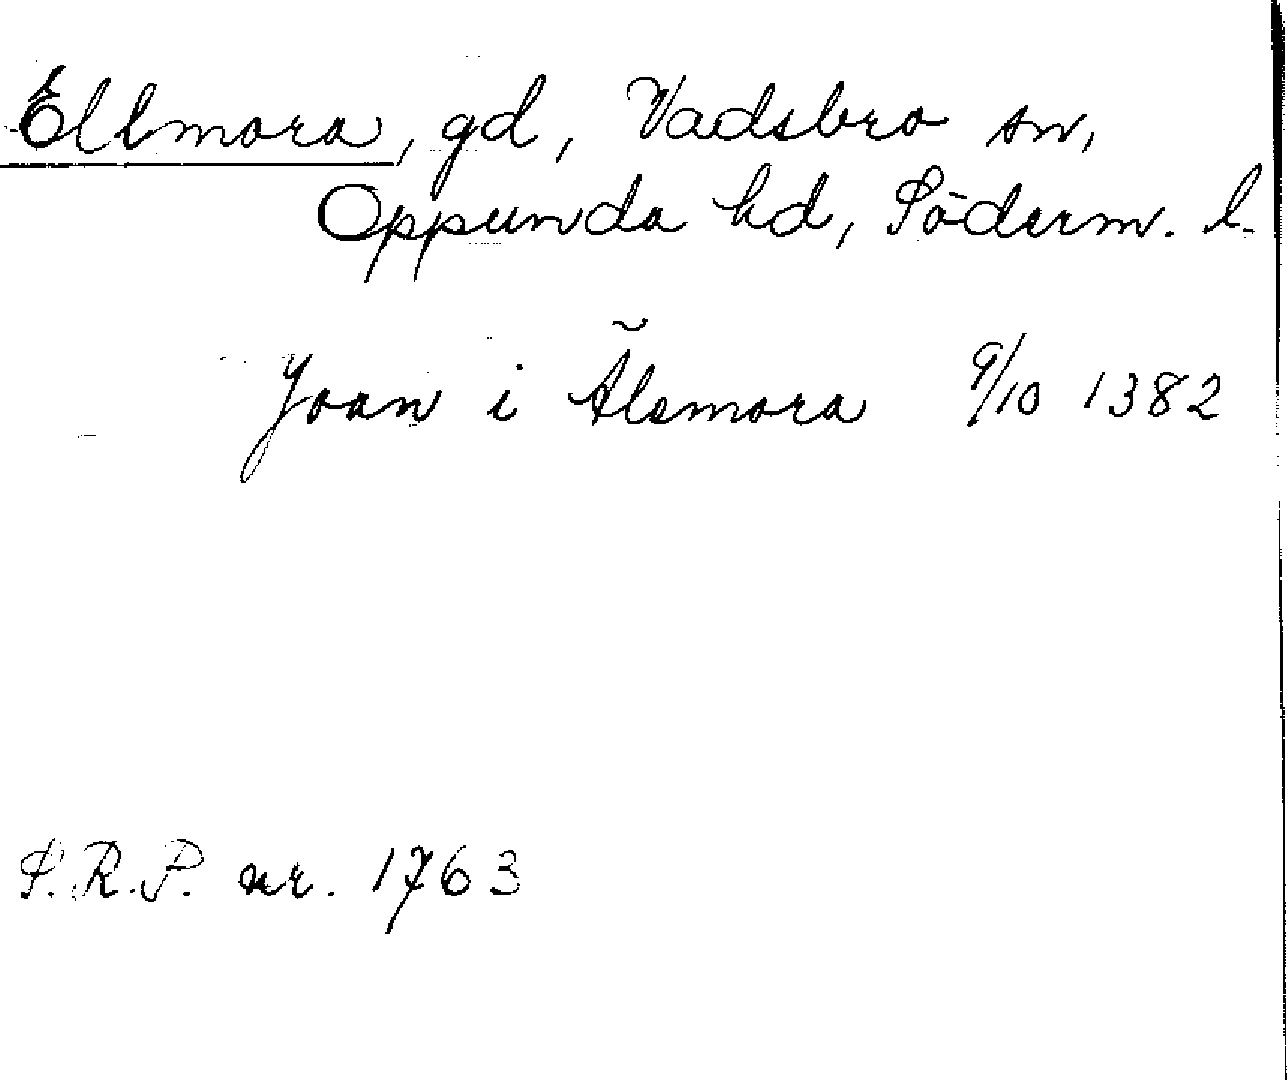 Ellmora, gd, Vadsbro sn,
Oppunda hd, Söderm. l.
Joan i Ælsmora 9/10 1382
S.R.P. nr. 1763